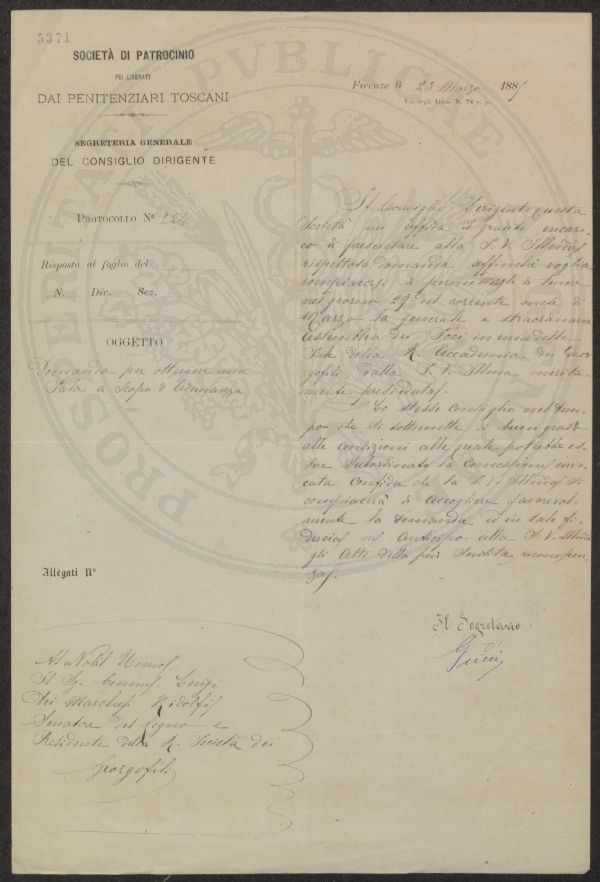 3371
SOCIETÀ DI PATROCINIO
PEI LIBERATI
DAI PENITENZIARI TOSCANI
SEGRETERIA GENERALE
DEL CONSIGLIO DIRIGENTE
PROTOCOLLO N° 224
Risposta al foglio del
N. Div. Sez.
OGGETTO
Domanda per ottenere una
Sala a scopo d'Adunanza
Allegati N°
Firenze lì 23 Marzo 188
Via degli Alfani N. 78 p. p.
Il Consiglio Dirigente questa
Società mi affida il gradito incari-
co di presentare alla S. V. Illma
rispettosa domanda affinchè voglia
compiacersi di permettergli di tenere
nel giorno 29 del corrente mese di
Marzo la generale e straordinaria
Assemblea dei Soci in una delle
Sale della R. Accademia dei Geor-
gofili, dalla S. V. Illma merita-
mente presieduta.
Lo stesso Consiglio nel tem-
po che si sottomette di buon grado
alle condizioni alle quali potrebbe es-
sere subordinata la concessione
confida che la S. V. Illma si
compiacerà di accogliere favorevol-
mente la domanda ed in tale fi-
ducia anticipo alla S. V. Illma
gli atti della più sentita riconoscen-
za.
Il Segretario
G. Pucci
Al Nobil Uomo
Il Sig. Comm. Luigi
dei Marchesi Ridolfi
Senatore del Regno e
Presidente della R. Società dei
Georgofili
PROSPERITATI PVBLICAE